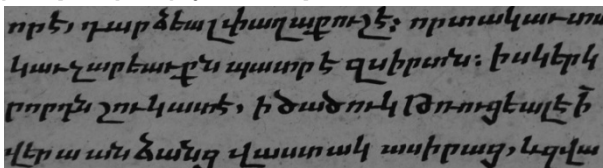 որէ, դարձեալ փաղաքուշէ: որտակաւտա
կաւշարեաւքն պատրէ զսիրտն: իսկերկ
րորդն շուկառէ, ի ծածուկ թռուցեալէ ի
վերա անձանց վաստակ ասիրաց, եզվա